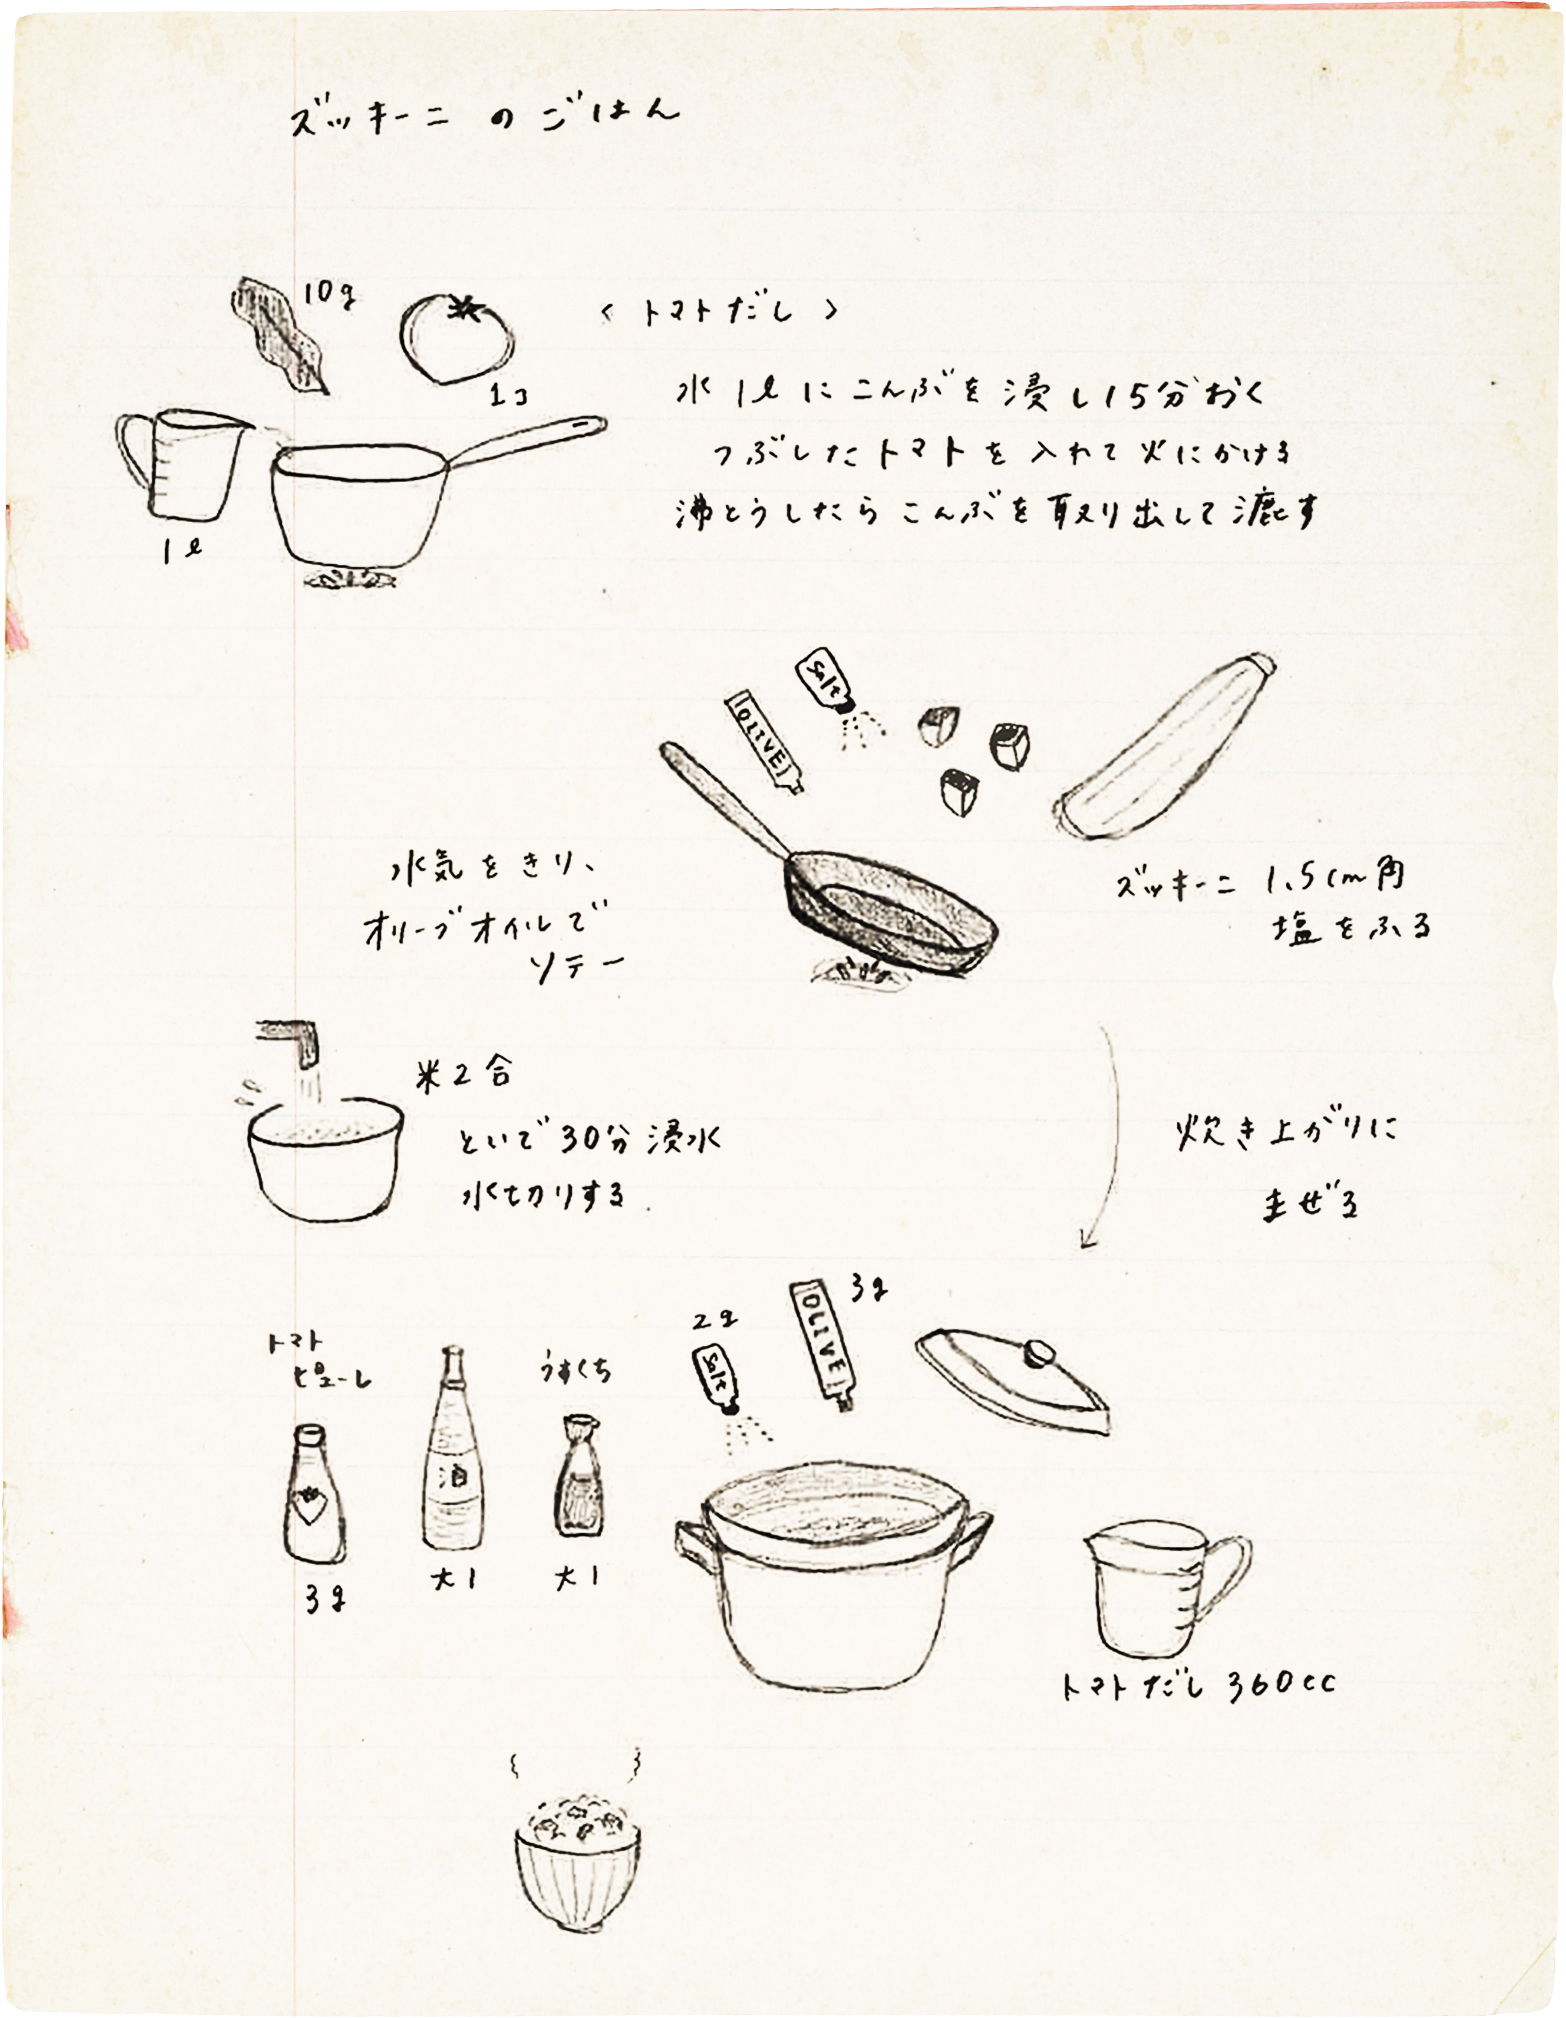 ズッキーニ の ごはん
10g
1コ
1ℓ
〈 トマトだし 〉
水 1ℓ に こんぶを 浸し 15分 おく
つぶした トマトを 入れて 火にかける
沸とうしたら こんぶを 取り出して 漉す
Salt
OLIVE
ズッキーニ 1.5cm角
塩をふる
水気をきり、
オリーブオイルで
ソテー
米2合
といで 30分 浸水
水切りする.
炊き上がりに
まぜる
トマト
ピューレ
3g
酒
大1
うすくち
大1
2g
Salt
3g
OLIVE
トマトだし 360cc